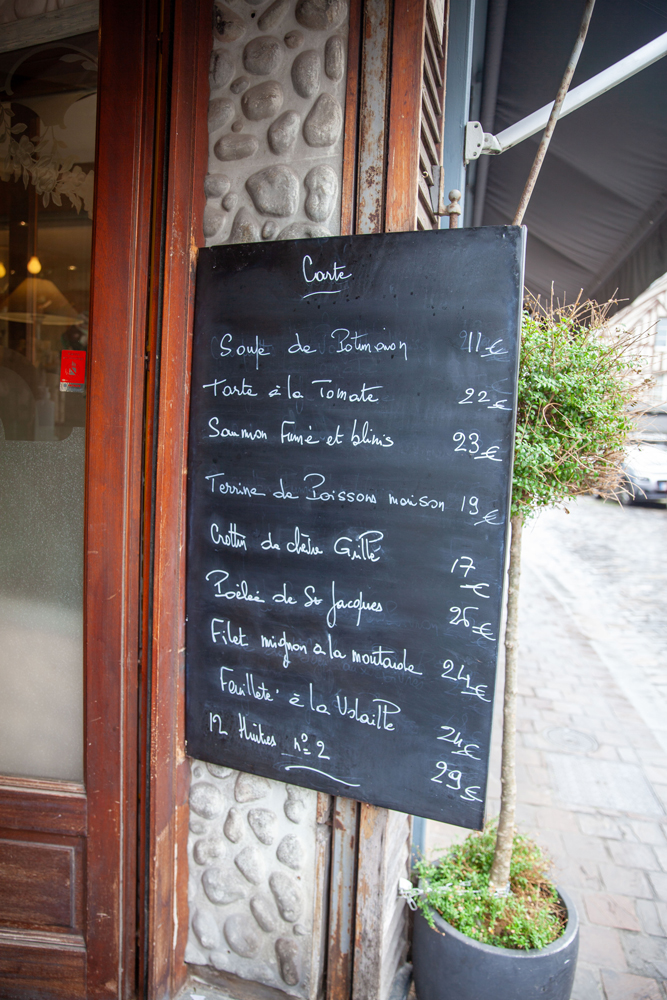 Carte
Soupe de Potimaron 11€
Tarte à la Tomate 22€
Saumon Fumé et blinis 23€
Terrine de Poissons maison 19€
Crottin de chèvre Grillé 17€
Poêlée de St Jacques 26€
Filet mignon à la moutarde 24€
Feuilleté à la Volaille 24€
12 Huitres n° 2 29€